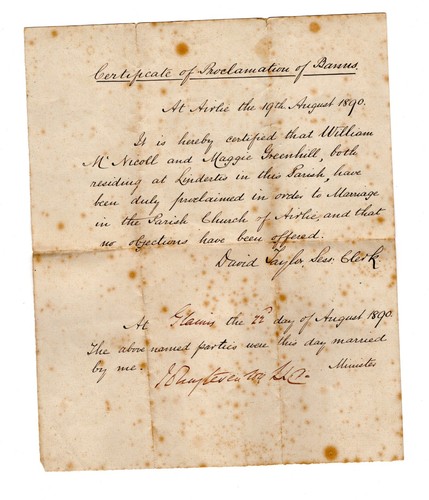 Certificate of Proclamation of Banns.
At Airlie the 19th August 1890.
It is hereby certified that William
Mc Nicoll and Maggie Greenhill, both
residing at Lindertis in this Parish, have
been duly proclaimed in order to Marriage
in the Parish Church of Airlie, and that
no objections have been offered.
David Taylor Sess. Clerk
At Glamis the 22d day of August 1890.
The above named parties were this day married
by me. Minister